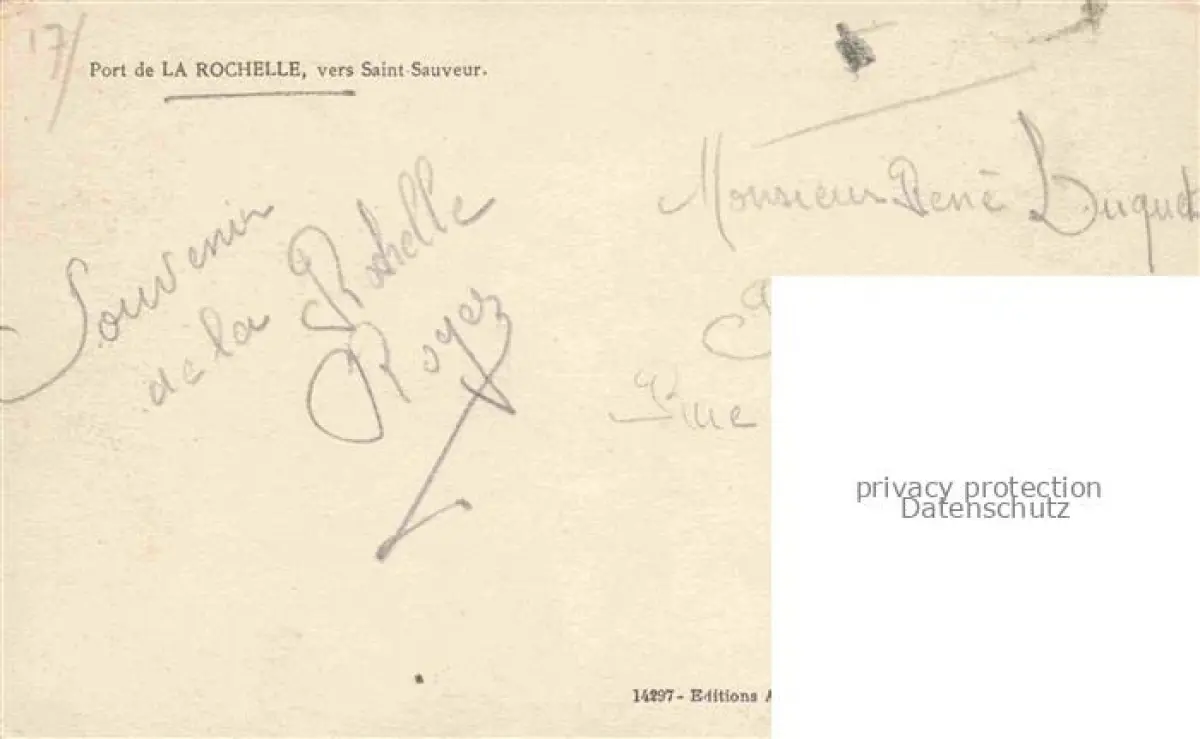 17/
Port de LA ROCHELLE, vers Saint-Sauveur.
Souvenir
de la Rochelle
Roger
Monsieur René
Rue
privacy protection
Datenschutz
14297 - Editions A